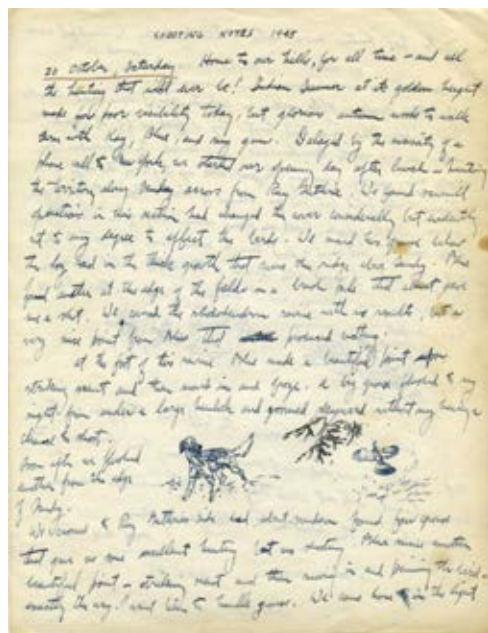 SHOOTING NOTES 1945
20 October, Saturday Home to our hills, for all time – and all
the hunting that will ever be! Indian Summer at its golden height
made for poor visibility today, but glorious autumn woods to walk
thru with Kay, Blue, and my gun. Delayed by the necessity of a
phone call to New York, we started our opening day after lunch – hunting
the territory along across from Ray Guthrie. We found
operations in this section had changed the cover considerably but evidently
not to any degree to affect the birds. We moved two grouse when
the dog and in the thick growth that the ridge
found another at the edge of the fields in a that almost gave
me a shot. We the rhododendron ravine with no results, but a
very nice point from Blue that produced nothing.
At the foot of this ravine Blue made a beautiful point after
striking scent and then moved in and froze. A big grouse flushed to my
right from under a large hemlock and skyward without my having a
chance to shoot.
Soon after we flushed
another from the edge
of
We crossed to Ray Guthrie's side and about found four grouse
that gave us some excellent hunting but no shooting. Blue another
beautiful point – striking scent and then moving in and pinning the bird –
exactly the way I want him to handle grouse. We came home in the light